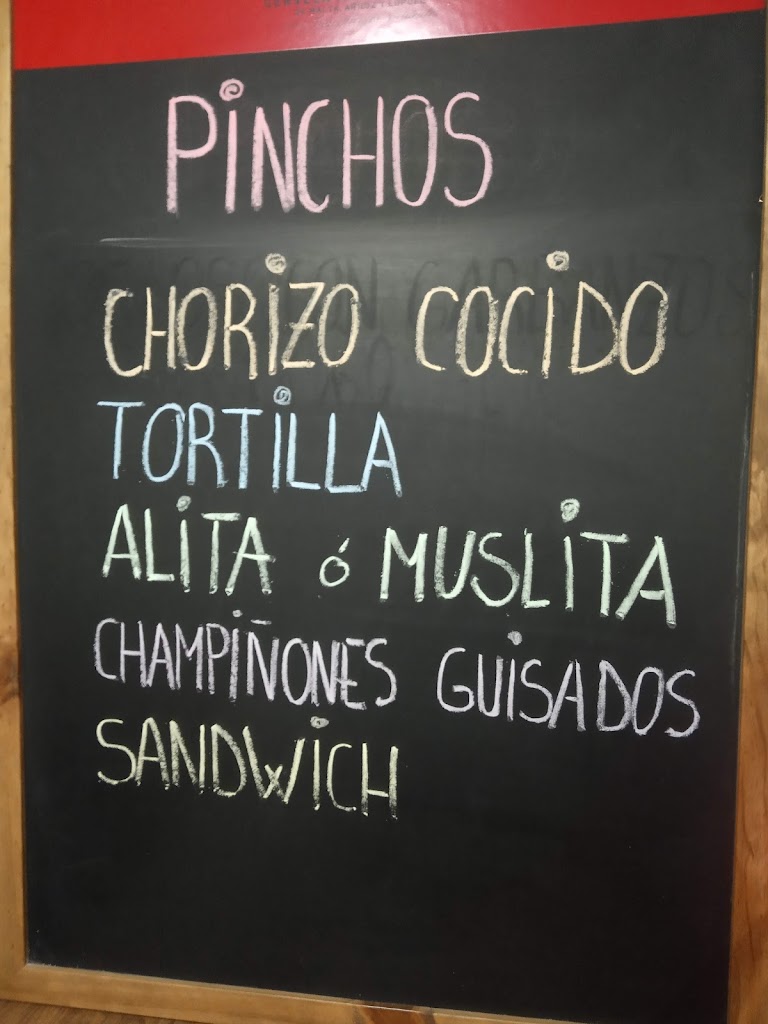 PINCHOS
CHORIZO COCIDO
TORTILLA
ALITA ó MUSLITA
CHAMPIÑONES GUISADOS
SANDWICH